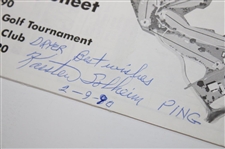 heet
90
Golf Tournament
Club
00
DRYER Best wishes
Karsten Solheim PING
2-9-90